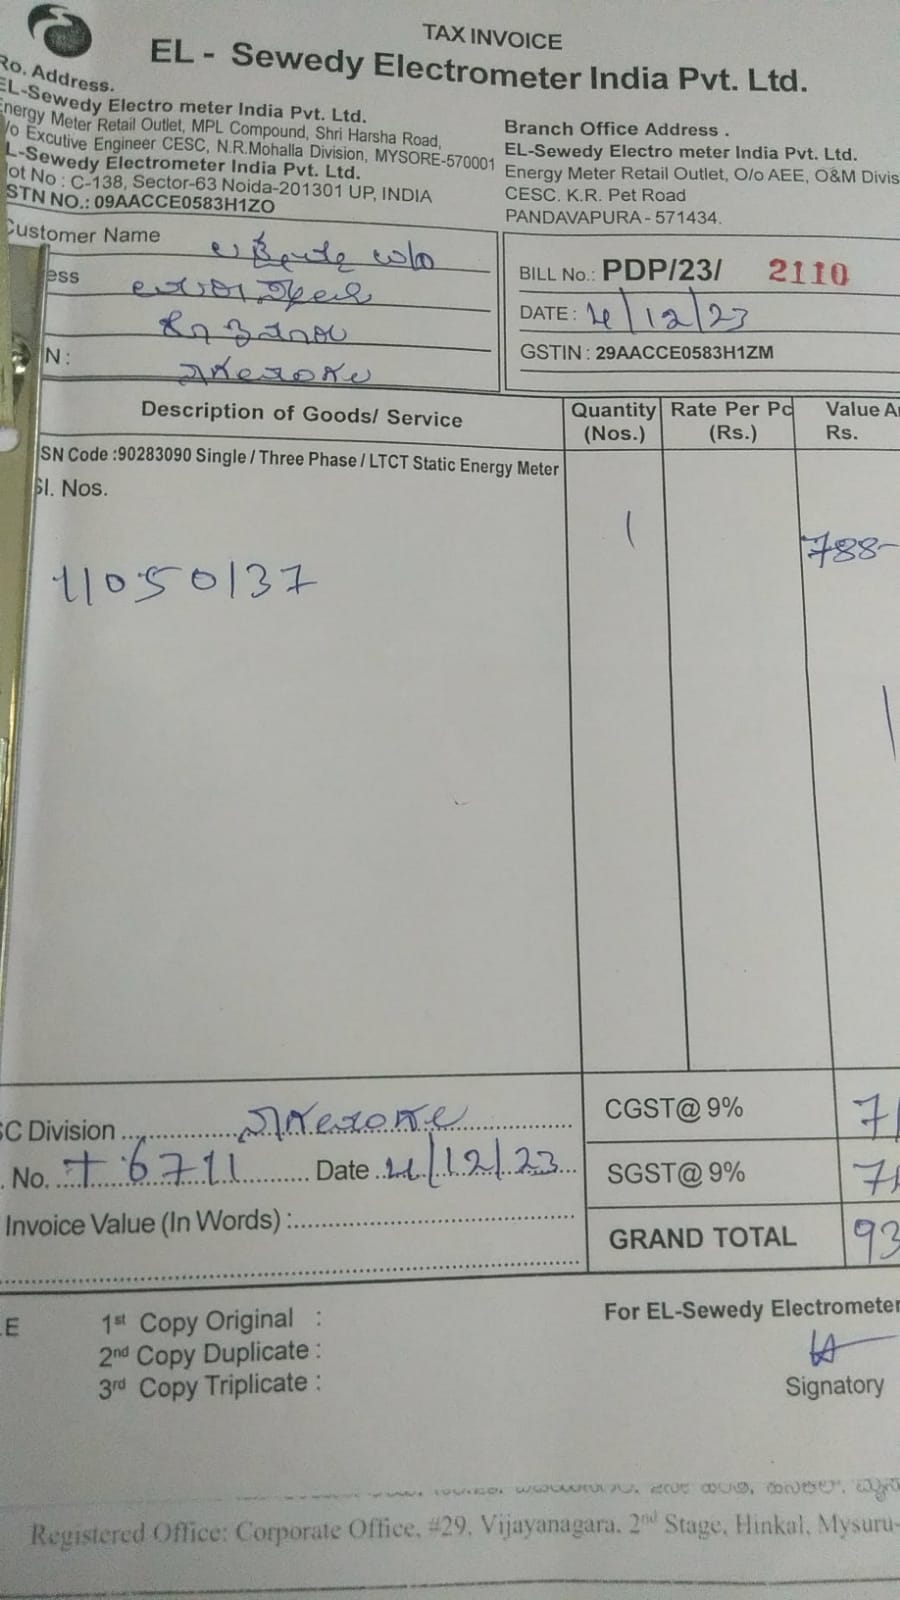 TAX INVOICE
EL - Sewedy Electrometer India Pvt. Ltd.
Ro. Address.
EL-Sewedy Electro meter India Pvt. Ltd.
Energy Meter Retail Outlet, MPL Compound, Shri Harsha Road,
/o Excutive Engineer CESC, N.R.Mohalla Division, MYSORE-570001
L-Sewedy Electrometer India Pvt. Ltd.
ot No : C-138, Sector-63 Noida-201301 UP, INDIA
STN NO.: 09AACCE0583H1ZO
Branch Office Address .
EL-Sewedy Electro meter India Pvt. Ltd.
Energy Meter Retail Outlet, O/o AEE, O&M Divis
CESC. K.R. Pet Road
PANDAVAPURA - 571434.
Customer Name
ess
N :
BILL No.: PDP/23/ 2110
DATE : 4/12/23
GSTIN : 29AACCE0583H1ZM
Description of Goods/ Service Quantity (Nos.) Rate Per Pc (Rs.) Value A Rs.
SN Code :90283090 Single / Three Phase / LTCT Static Energy Meter
Sl. Nos.
1 788-
11050137
SC Division
. No. T 6711 Date 4/12/23
Invoice Value (In Words) :
CGST@ 9% 7
SGST@ 9% 7
GRAND TOTAL 93
LE 1st Copy Original :
2nd Copy Duplicate :
3rd Copy Triplicate :
For EL-Sewedy Electrometer
Signatory
Registered Office: Corporate Office, #29, Vijayanagara, 2nd Stage, Hinkal, Mysuru-